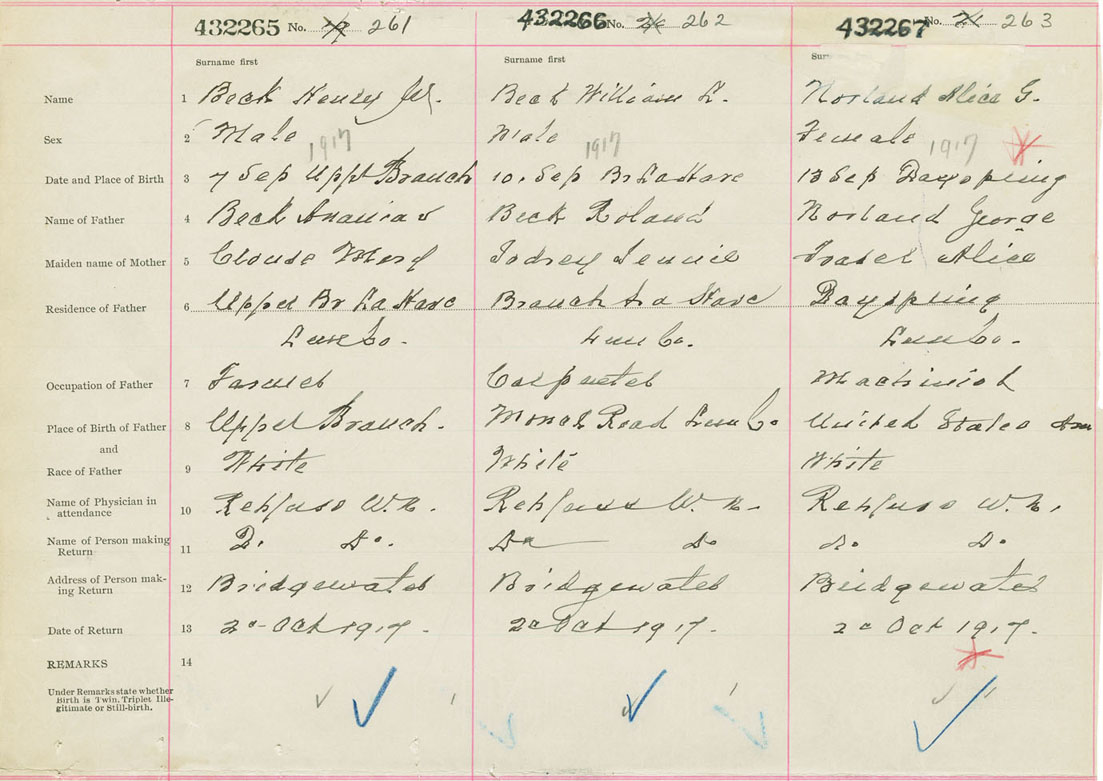 432265 No. 19 261
432266 No. 20 262
432267 No. 21 263
Surname first Surname first Sur
Name 1 Beck Henry W. Beck William L. Norland Alice G.
Sex 2 Male Male Female
1917 1917 1917
Date and Place of Birth 3 7 Sep Upper Branch 10, Sep Br LaHave 13 Sep Dayspring
Name of Father 4 Beck Ananias Beck Roland Norland George
Maiden name of Mother 5 Clouse Mary Jodrey Jennie Alice
Residence of Father 6 Upper Br LaHave Branch La Have Dayspring
Lun Co. Lun Co. Lun Co.
Occupation of Father 7 Farmer Carpenter Machinist
Place of Birth of Father 8 Upper Branch. Road Lun Co United States Am
and
Race of Father 9 White White White
Name of Physician in
attendance 10 Rehfuss W. N. Rehfuss W. N. Rehfuss W. N.
Name of Person making
Return 11 Do. Do. Do Do Do. Do.
Address of Person mak-
ing Return 12 Bridgewater Bridgewater Bridgewater
Date of Return 13 20 Oct 1917. 20 Oct 1917. 20 Oct 1917.
REMARKS 14
Under Remarks state whether
Birth is Twin, Triplet Ille-
gitimate or Still-birth.